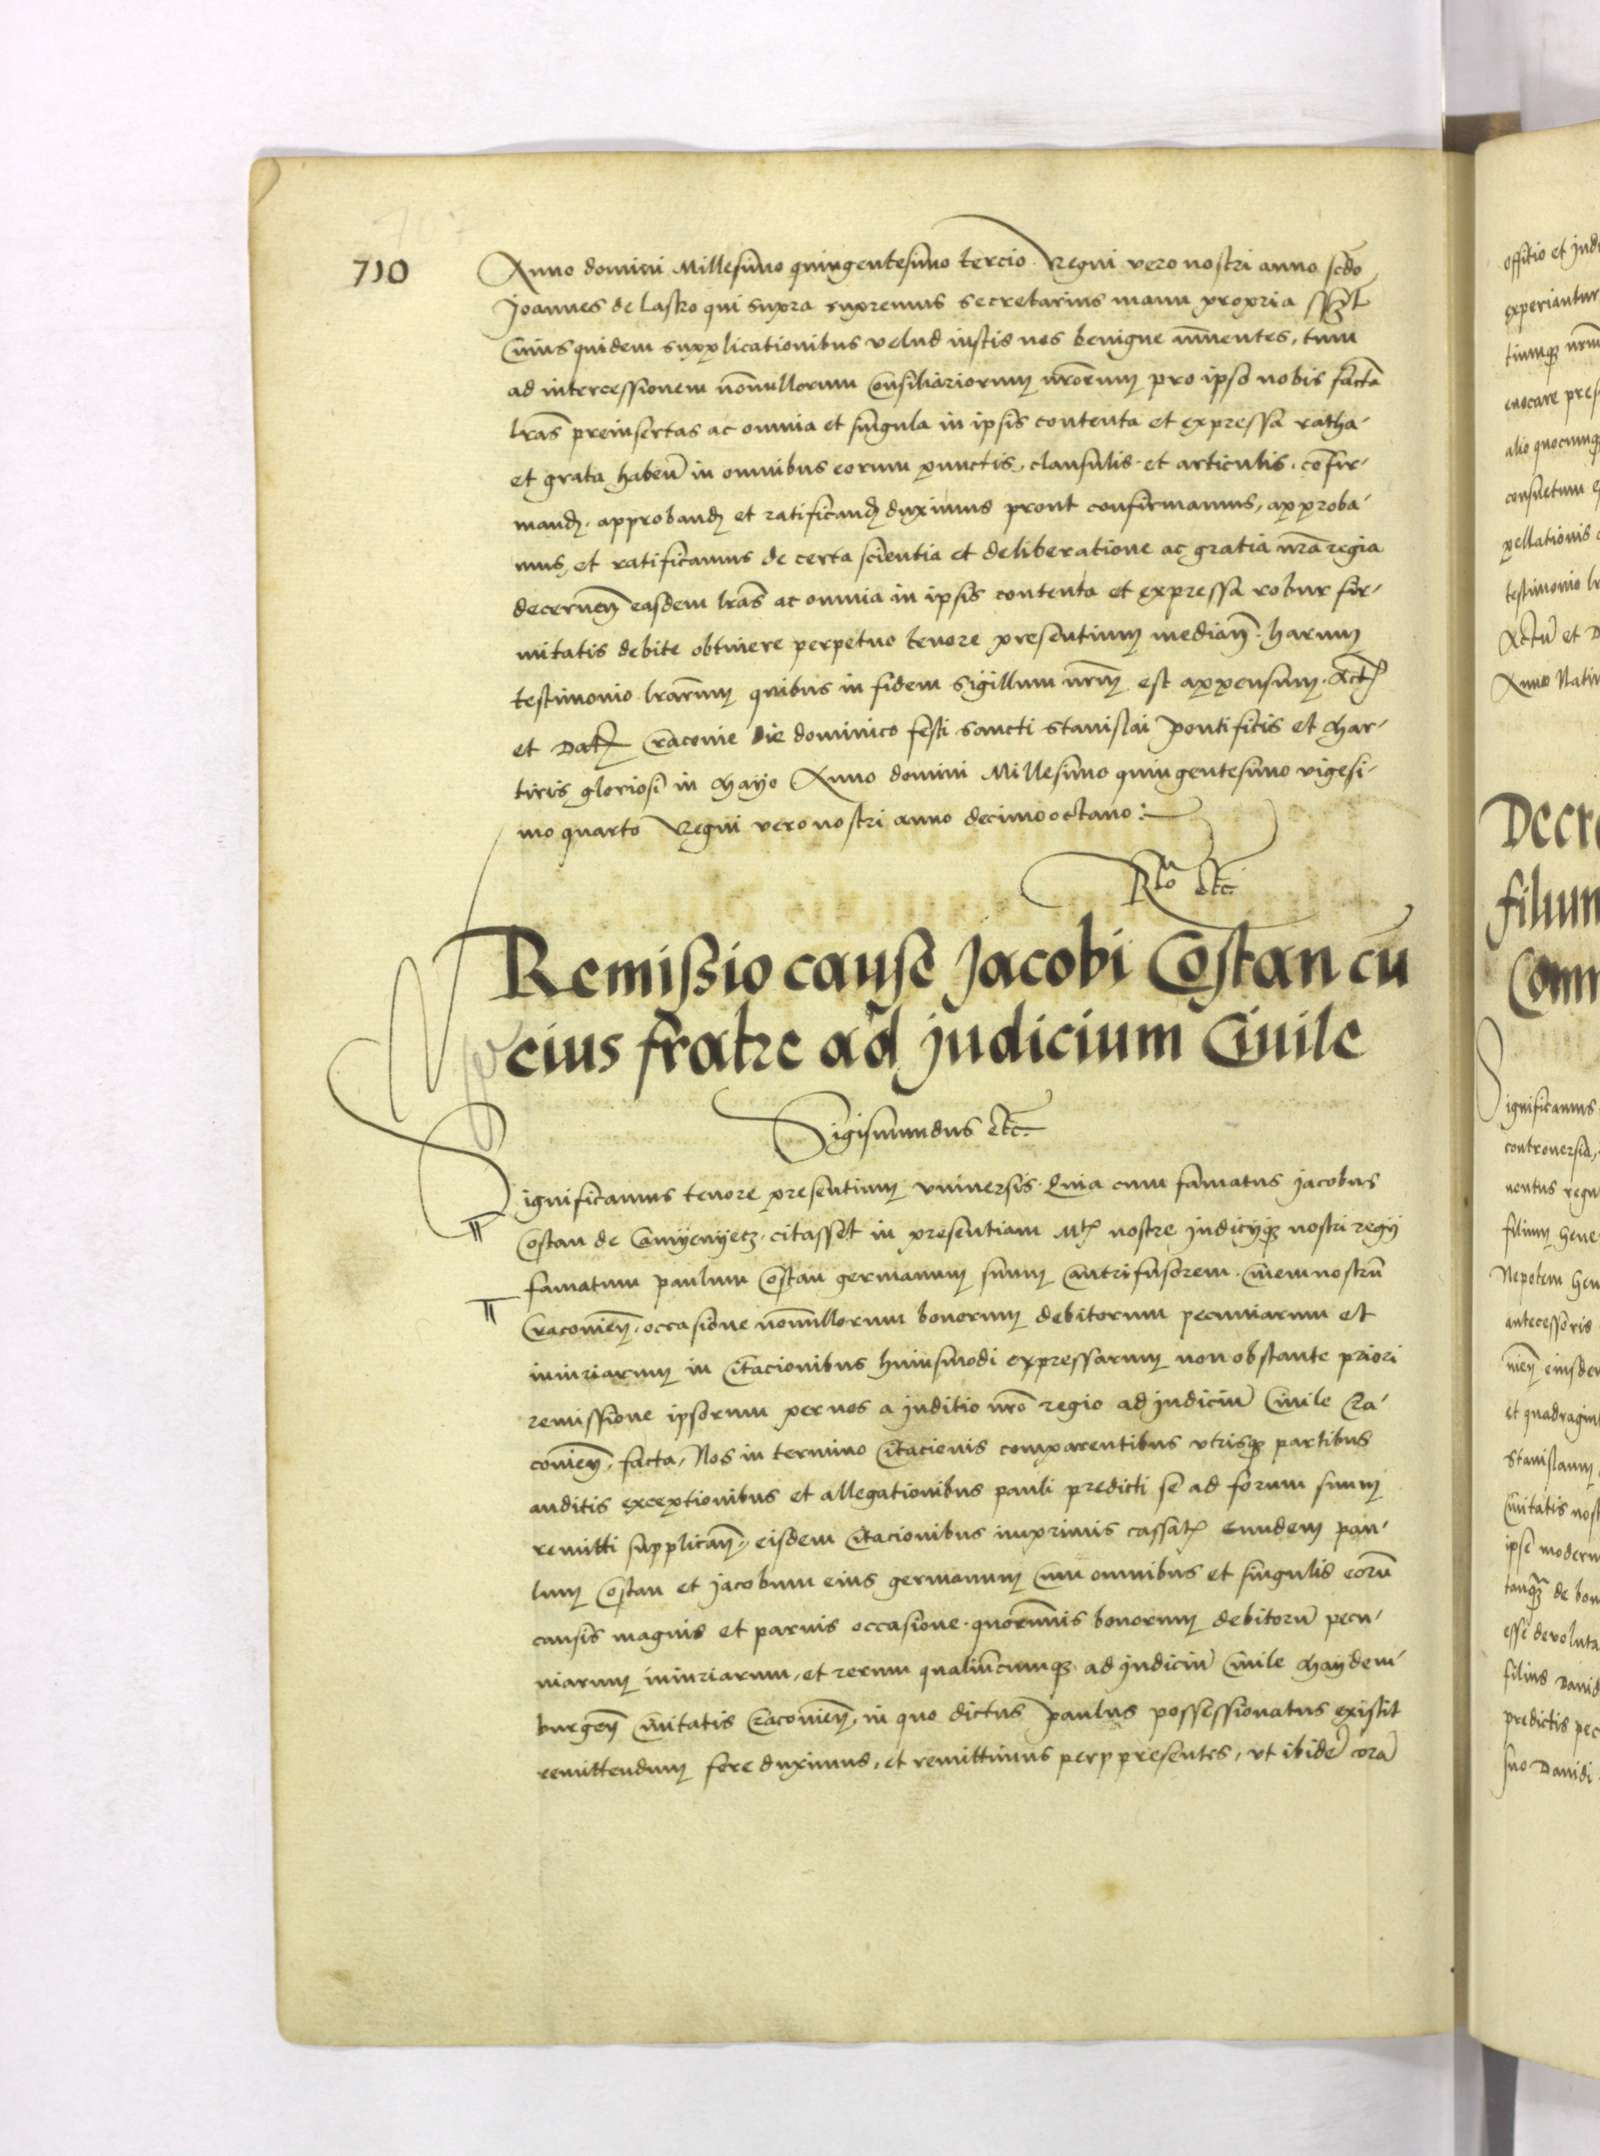 710
Anno domini Millesimo quingentesimo tercio Regni vero nostri anno scdo
Joannes de Lasko qui supra supremus secretarius manu propria sszt
Cuius quidem supplicationibus velud iustis nos benigne annuentes, tum
ad intercessionem nonnullorum Consiliariorum nrorum pro ipso nobis facta
lras preinsertas ac omnia et singula in ipsis contenta et expressa ratha
et grata haben in omnibus eorum punctis, clausulis et articulis, confir-
mand, approband et ratificand duximus prout confirmamus, approba-
mus, et ratificamus de certa scientia et deliberatione ac gratia nra regia
decernen easdem lras ac omnia in ipsis contenta et expressa robur fir-
mitatis debite obtinere perpetuo tenore presentium median harum
testimonio lrarum quibus in fidem Sigillum nrum est appensum. Act
et Dat Cracovie die dominico festi sancti Stanislai Pontificis et Mar-
tiris gloriosi in Mayo Anno domini Millesimo quingentesimo vigesi-
mo quarto Regni vero nostri anno decimooctavo:
Rlo etc
Remissio cause Jacobi Costan cu
eius fratre ad judicium Civile
Sigismundus etc
Significamus tenore presentium universis. Quia cum famatus Jacobus
Costan de Camyenyetz citasset in presentiam Mtis nostre judicyq nostri regii
famatum paulum Costan germanum suum Cantrifusorem Civem nostru
Cracovien, occasione nonnullorum bonorum debitorum pecuniarum et
iniuriarum in Citacionibus huiusmodi expressarum non obstante priori
remissione ipsorum per nos a juditio nro regio ad judiciu Civile Cra-
covien, facta, Nos in termino Citacionis comparentibus utrisq partibus
auditis exceptionibus et allegationibus pauli predicti se ad forum suum
remitti supplican, eisdem Citacionibus inprimis cassat eundem pau-
lum Costan et Jacobum eius germanum Cum omnibus et singulis eoru
causis magnis et parvis occasione quorumvis bonorum debitoru pecu-
niarum iniuriarum, et rerum qualiucumq ad judiciu Civile Maydem-
burgen Civitatis Cracovien, in quo dictus Paulus possessionatus existit
remittendum fere duximus, et remittimus perp presentes, ut ibide cora
offitio et judi
experiantur
tiumq nrum
evocare pres
alio quocumq
consuetum
pellationis
testimonio lr
Actu et D
Anno Nativ
Decre
filium
Comm
Significamus
controversia,
nentus regn
filium Hene
Nepotem Hen
antecessoris
nien eiusdem
et quadragint
Stanislaum
Civitatis nost
ipse modern
tanq de bon
esse devoluta
filius David
predictis pec
suo Davidi